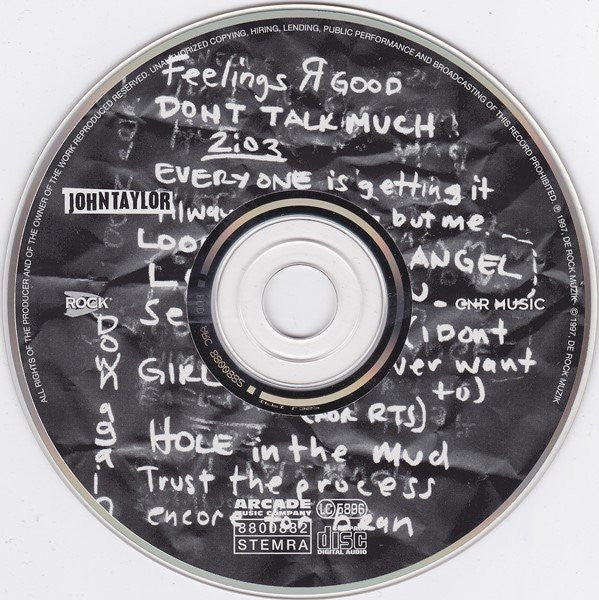 ALL RIGHTS OF THE PRODUCER AND OF THE OWNER OF THE WORK REPRODUCED RESERVED. UNAUTHORIZED COPYING, HIRING, LENDING, PUBLIC PERFORMANCE AND BROADCASTING OF THIS RECORD PROHIBITED. ℗ 1997, DE ROCK MUZIK © 1997, DE ROCK MUZIK
Feelings Я GOOD
DONT TALK MUCH
2:03
EVERYONE is getting it
JOHN TAYLOR
Always but me
ANGEL
ROCK
CNR MUSIC
i Dont
GIRL ever want
to)
(FOR RTS)
Down again
HOLE in the mud
Trust the process
encore
ARCADE
MUSIC COMPANY
8800882
STEMRA
LC 5896
COMPACT
disc
DIGITAL AUDIO